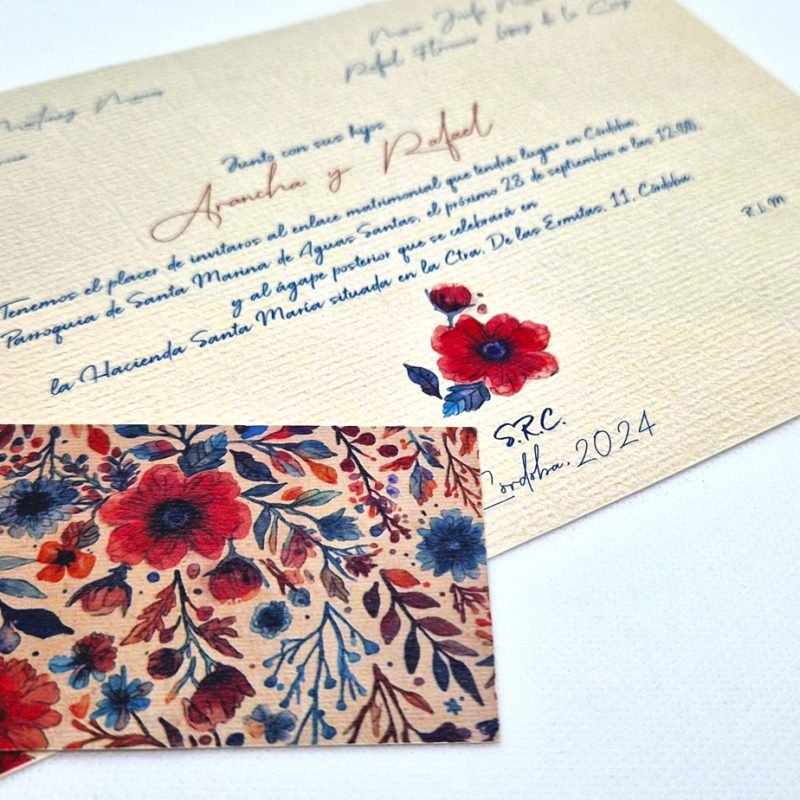 Rafael
López de la
Junto con sus hijos
Arancha y Rafael
Tenemos el placer de invitaros al enlace matrimonial que tendrá lugar en Córdoba,
Parroquia de Santa Marina de Aguas Santas, el próximo 28 de septiembre a las 12:00,
y al ágape posterior que se celebrará en
la Hacienda Santa María situada en la Ctra. De las Ermitas, 11, Córdoba.
R.L.M
S.R.C.
Córdoba, 2024